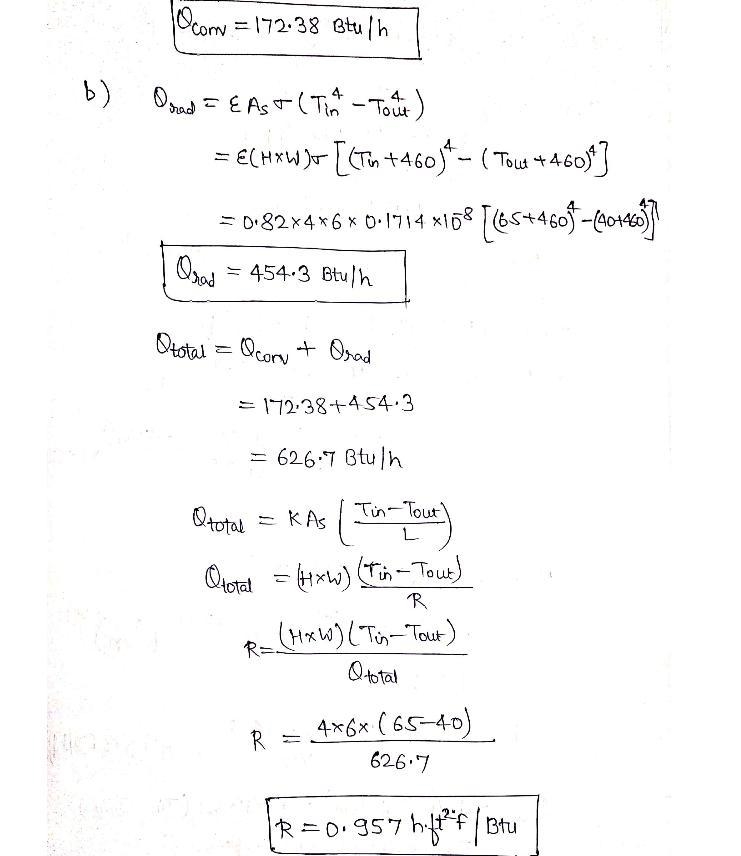 Qconv = 172.38 Btu/h
b) Qrad = εAsσ(Tin⁴ − Tout⁴)
= ε(H×W)σ[(Tin+460)⁴ − (Tout+460)⁴]
= 0.82×4×6×0.1714×10⁻⁸[(65+460)⁴−(40+460)⁴]
Qrad = 454.3 Btu/h
Qtotal = Qconv + Qrad
= 172.38+454.3
= 626.7 Btu/h
Qtotal = KAs(Tin−Tout/L)
Qtotal = (H×W)(Tin−Tout)/R
R = (H×W)(Tin−Tout)/Qtotal
R = 4×6×(65−40)/626.7
R = 0.957 h·ft²·°f/Btu